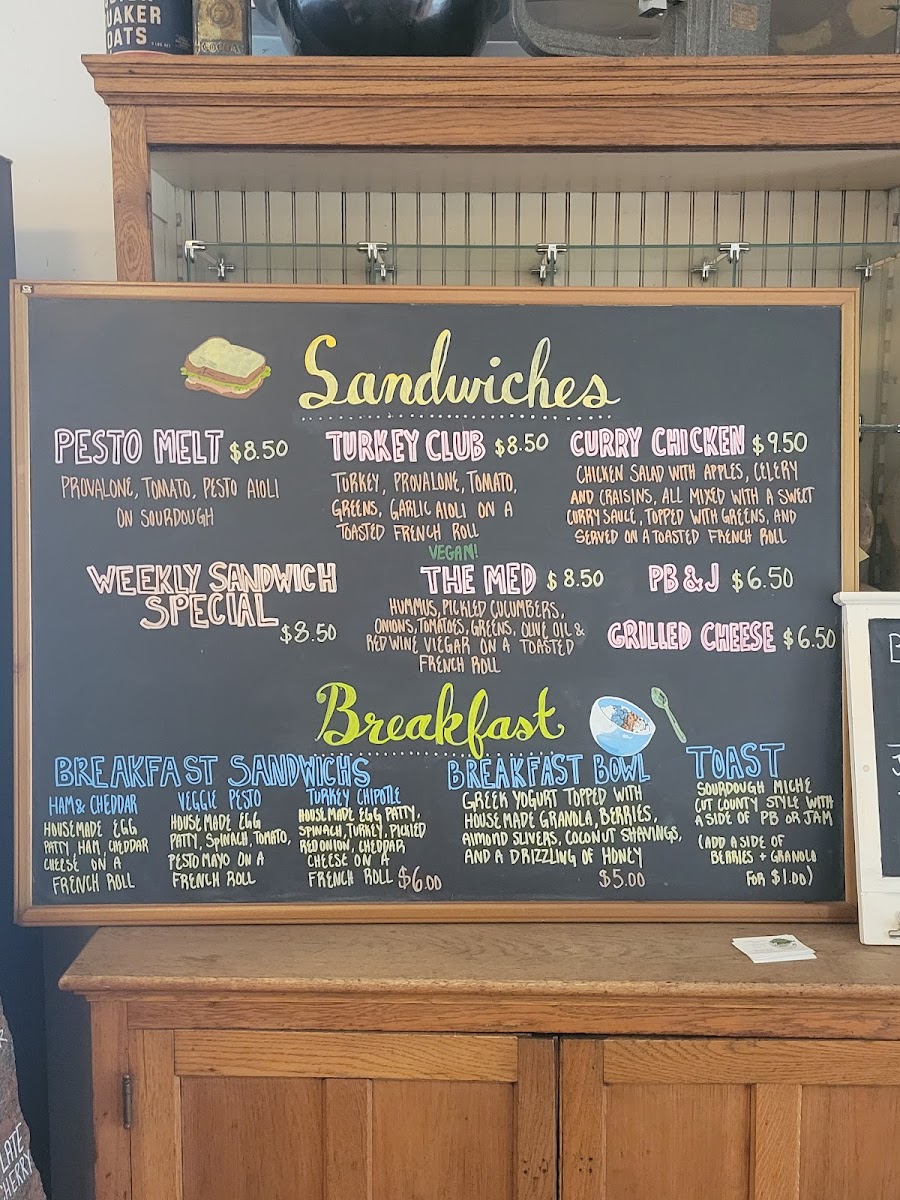 UAKER
OATS
Sandwiches
PESTO MELT $8.50
PROVALONE, TOMATO, PESTO AIOLI
ON SOURDOUGH
TURKEY CLUB $8.50
TURKEY, PROVALONE, TOMATO,
GREENS, GARLIC AIOLI ON A
TOASTED FRENCH ROLL
CURRY CHICKEN $9.50
CHICKEN SALAD WITH APPLES, CELERY
AND CRAISINS, ALL MIXED WITH A SWEET
CURRY SAUCE, TOPPED WITH GREENS, AND
SERVED ON A TOASTED FRENCH ROLL
WEEKLY SANDWICH
SPECIAL
$8.50
VEGAN!
THE MED $8.50
HUMMUS, PICKLED CUCUMBERS,
ONIONS, TOMATOES, GREENS, OLIVE OIL &
RED WINE VIEGAR ON A TOASTED
FRENCH ROLL
PB & J $6.50
GRILLED CHEESE $6.50
Breakfast
BREAKFAST SANDWICHS
HAM & CHEDDAR
HOUSEMADE EGG
PATTY, HAM, CHEDDAR
CHEESE ON A
FRENCH ROLL
VEGGIE PESTO
HOUSEMADE EGG
PATTY, SPINACH, TOMATO,
PESTO MAYO ON A
FRENCH ROLL
TURKEY CHIPOTLE
HOUSEMADE EGG PATTY,
SPINACH, TURKEY, PICKLED
RED ONION, CHEDDAR,
CHEESE ON A
FRENCH ROLL $6.00
BREAKFAST BOWL
GREEK YOGURT TOPPED WITH
HOUSEMADE GRANOLA, BERRIES,
AlMOND SLIVERS, COCONUT SHAVINGS,
AND A DRIZZLING OF HONEY
$5.00
TOAST
SOURDOUGH MICHE
CUT COUNTY STYLE WITH
A SIDE OF PB OR JAM
(ADD A SIDE OF
BERRIES + GRANOLO
FOR $1.00)
LATE
CHERRY